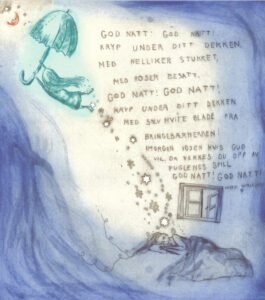 GOD NATT! GOD NATT!
KRYP UNDER DITT DEKKEN
MED NELLIKER STUKKET,
MED ROSER BESATT.
GOD NATT! GOD NATT!
KRYP UNDER DITT DEKKEN
MED SNØHVITE BLADE FRA
BRINGEBÆRHEKKEN
IMORGEN IGJEN HVIS GUD
VIL, DA VEKKES DU OPP AV
FUGLENES SPILL
GOD NATT! GOD NATT!